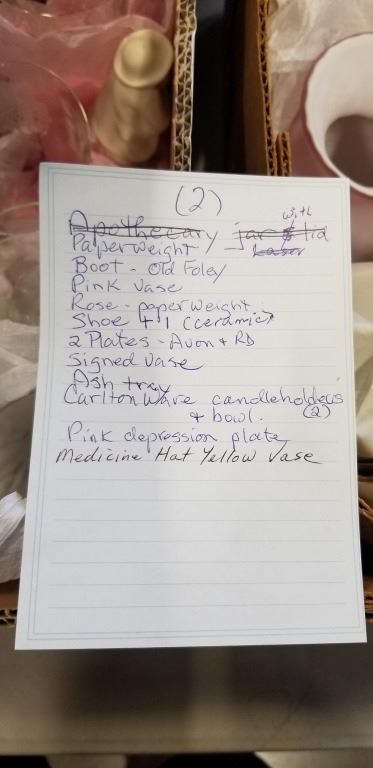 (2)
Apothecary jar & lid with
Paperweight
Boot - Old Foley
Pink Vase
Rose - paperweight
Shoe #1 (ceramic)
2 Plates - Avon & RD
Signed Vase
Ash tray
Carlton Ware candleholders (2)
& bowl.
Pink depression plate
Medicine Hat Yellow Vase